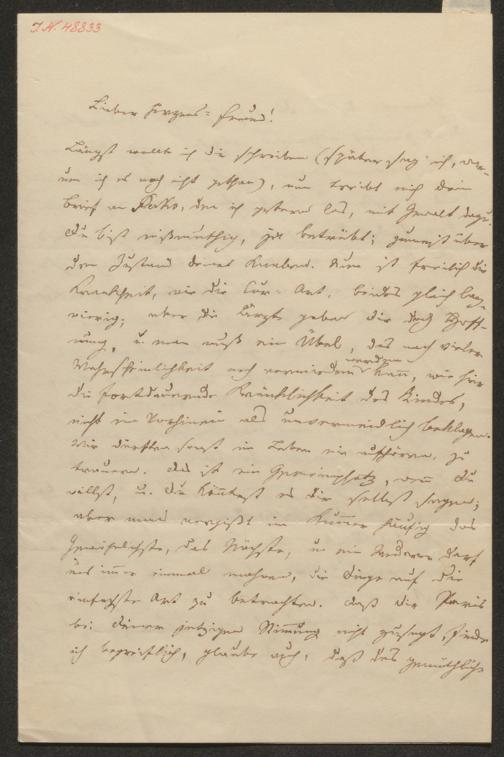 J. N. 48833
Lieber Herzens-Freund!
Längst wollte ich Dir schreiben (später sag' ich, war-
um ich es noch nicht gethan), nun treibt mich Dein
Brief an, den ich gestern las, mit Gewalt dazu.
Du bist mißmuthig, ja betrübt; zumeist über
den Zustand Deines Knaben. Nun ist freilich die
Krankheit, wie die Cur-Art, beides gleich lang-
wierig; aber die Ärzte geben Dir doch Hoff-
nung, u. man muß ein Übel, das nach vieler
Wahrscheinlichkeit noch vermieden werden kann, wie hier
die fortdauernde Kränklichkeit des Kindes,
nicht im Vorhinein als unvermeidlich beklagen.
Wir dürften sonst im Leben nie aufhören, zu
trauern. Das ist ein Gemeinplatz, wenn Du
willst, u. Du könntest es Dir selbst sagen;
aber man vergißt im Kummer häufig das
das Nächste, u. ein Anderer darf
uns immer einmal mahnen, die Dinge auf die
einfachste Art zu betrachten. Daß Dir Paris
bei Deiner jetzigen Stimmung nicht zusagt, finde
ich begreiflich, glaube auch, daß das gemüthliche